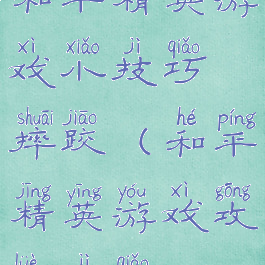 和平精英游
xì xiǎo jì qiǎo
戏小技巧
shuāi jiāo hé píng
摔跤（和平
jīng yīng yóu xì gōng
精英游戏攻
lüè jì qiǎo